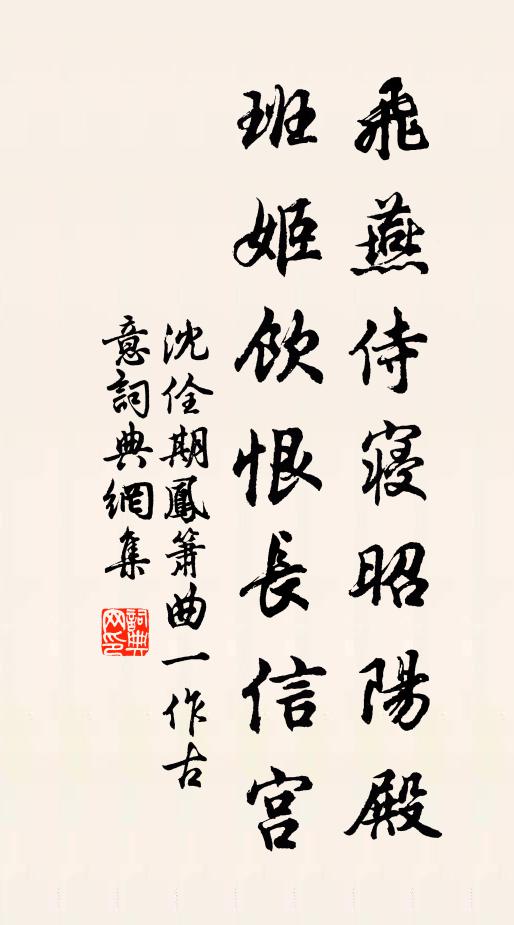 飛燕侍寢昭陽殿
班姬飲恨長信宮
沈佺期鳳簫曲一作古
意詞典網集
詞典網印